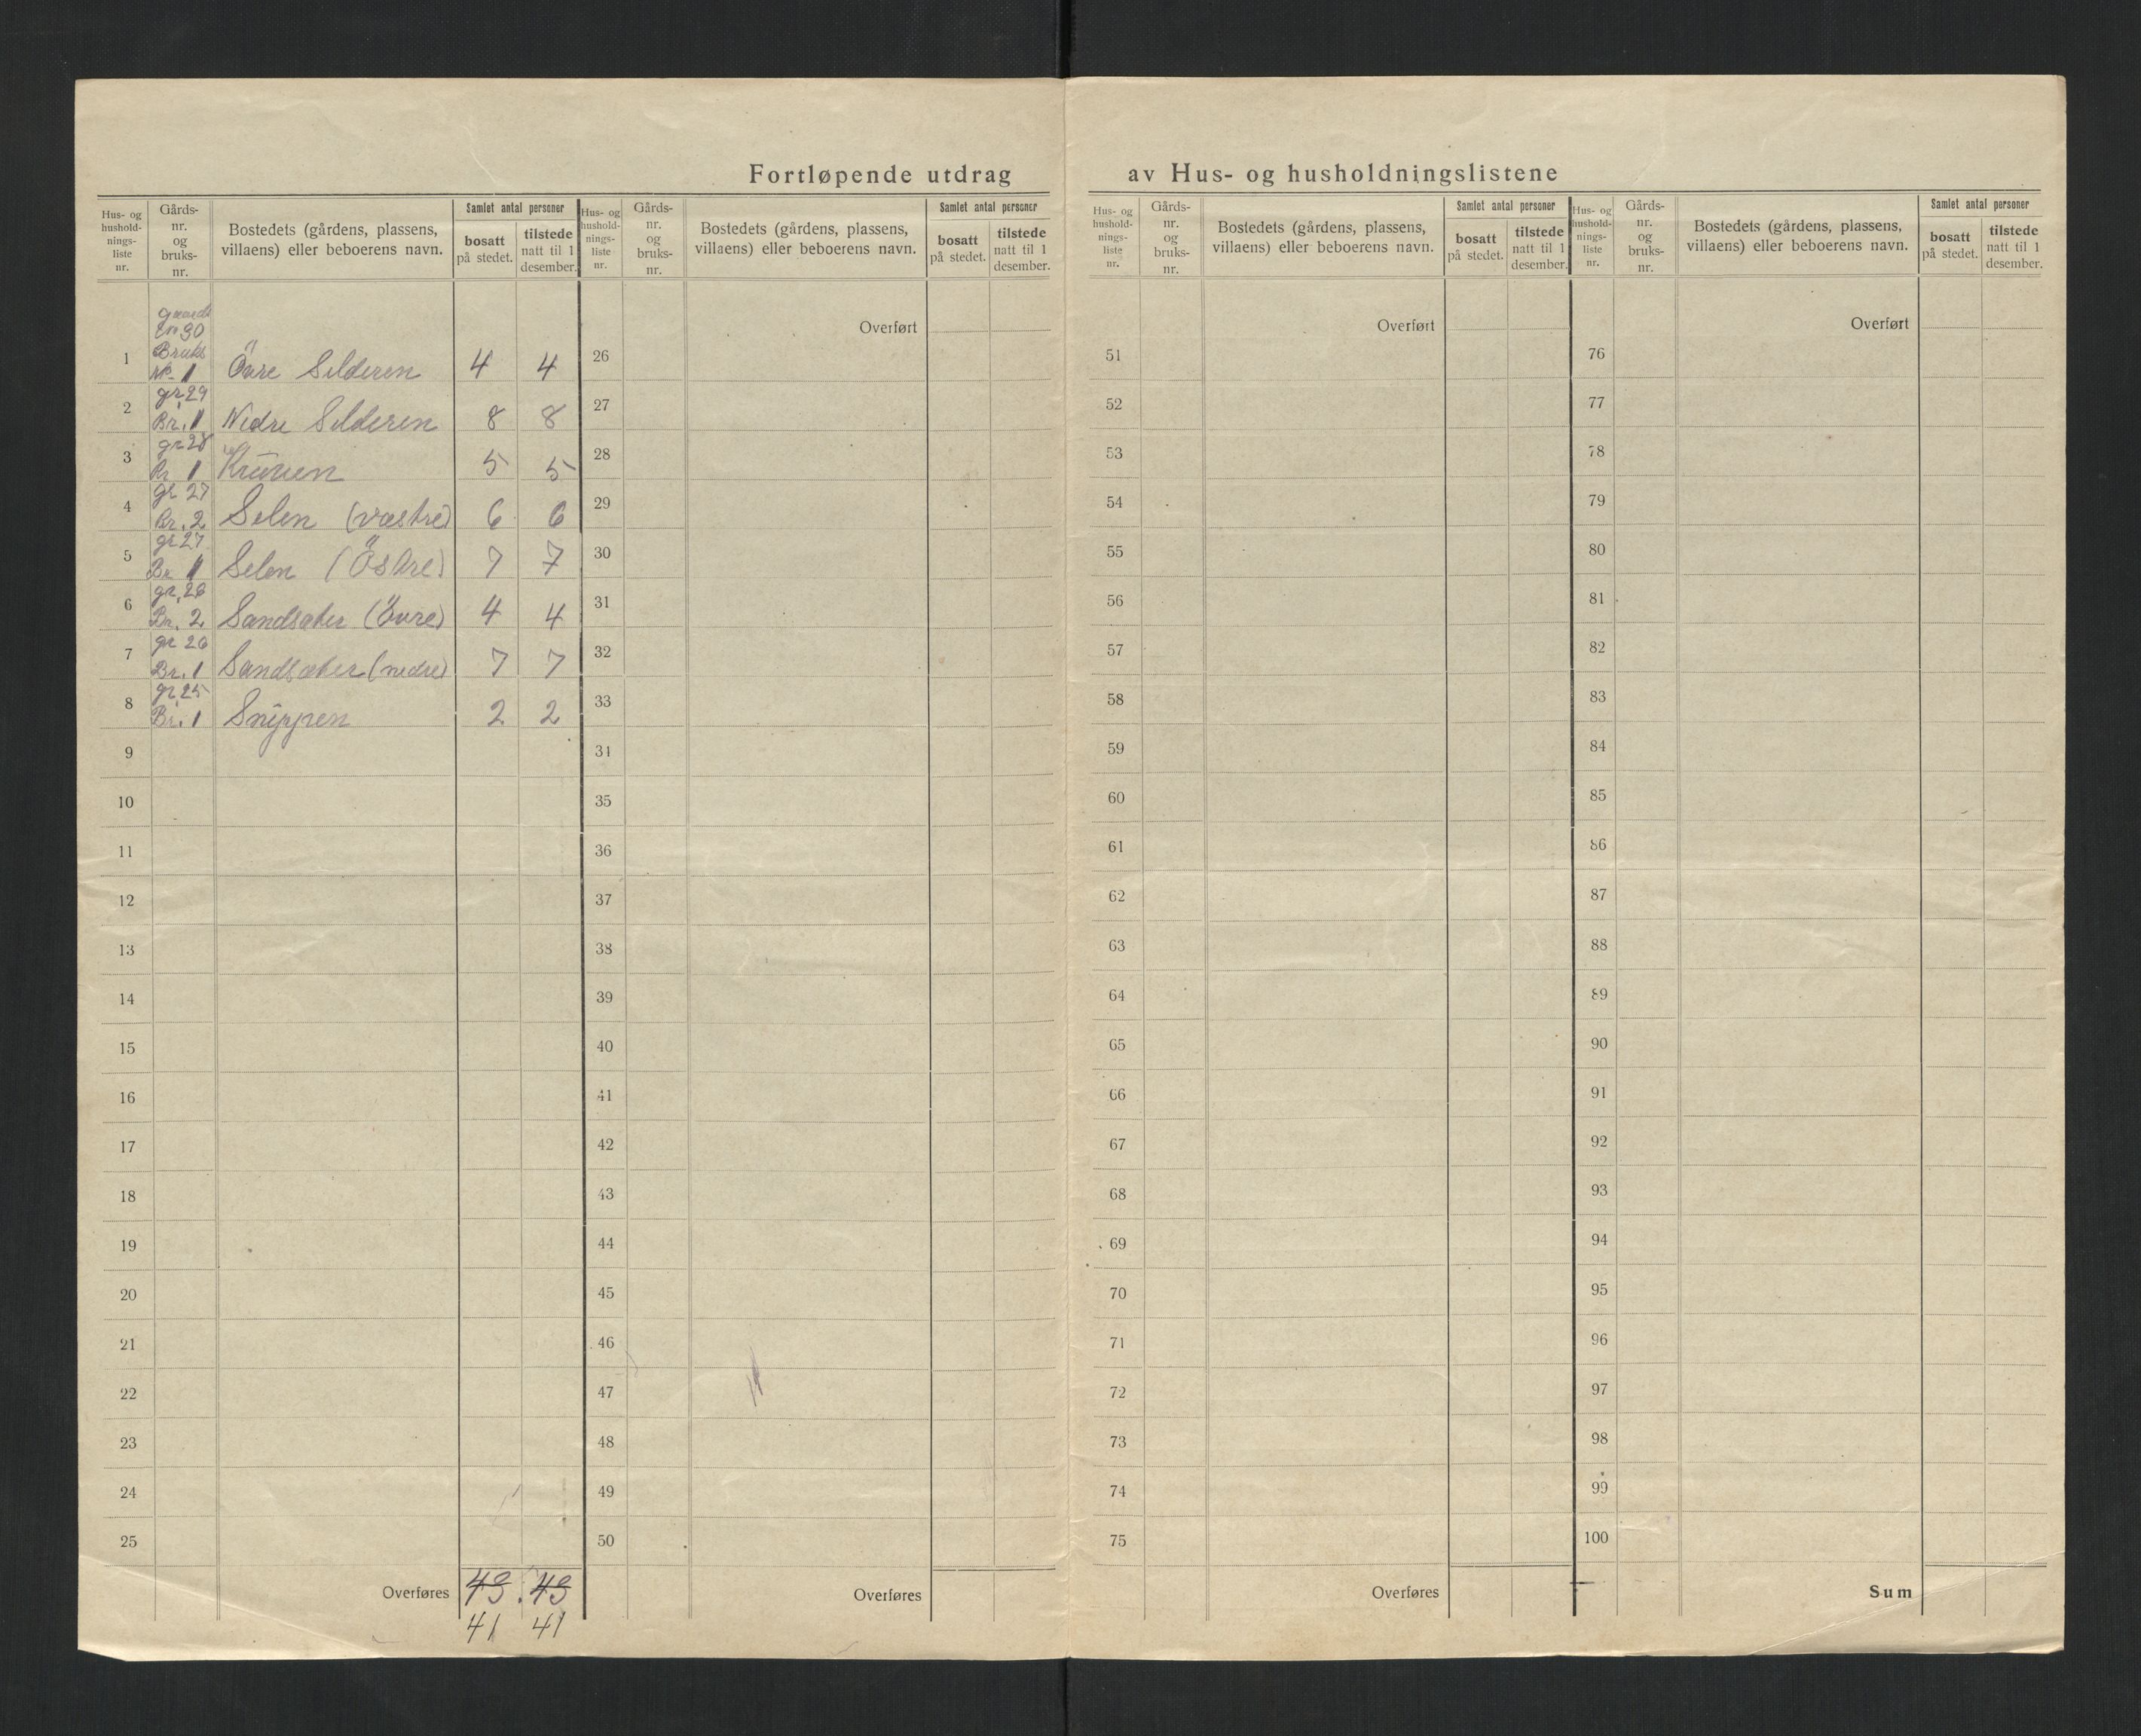 Fortløpende utdrag av Hus- og husholdningslistene
Hus- og
hushold-
nings-
liste
nr.
Gårds-
nr.
og
bruks-
nr.
Bostedets (gårdens, plassens,
villaens) eller beboerens navn.
Samlet antal personer
bosatt
på stedet.
tilstede
natt til 1
desember.
Hus- og
hushold-
nings-
liste
nr.
Gårds-
nr.
og
bruks-
nr.
Bostedets (gårdens, plassens,
villaens) eller beboerens navn.
Samlet antal personer
bosatt
på stedet.
tilstede
natt til 1
desember.
Hus- og
hushold-
nings-
liste
nr.
Gårds-
nr.
og
bruks-
nr.
Bostedets (gårdens, plassens,
villaens) eller beboerens navn.
Samlet antal personer
bosatt
på stedet.
tilstede
natt til 1
desember.
Hus- og
hushold-
nings-
liste
nr.
Gårds-
nr.
og
bruks-
nr.
Bostedets (gårdens, plassens,
villaens) eller beboerens navn.
Samlet antal personer
bosatt
på stedet.
tilstede
natt til 1
desember.
30
Bruks
1 No 1 Övre Selderen 4 4
gr 29
2 Br. 1 Nedre Selderen 8 8
gr 28
3 Br 1 5 5
gr 27
4 Br. 2 Selen (vestre) 6 6
gr 27
5 Br 1 Selen (Östre) 7 7
gr. 26
6 Br. 2 Sandsaker (Övre) 4 4
gr 26
7 Br. 1 Sandsaker (nedre) 7 7
gr 25
8 Br. 1 Snippen 2 2
9
10
11
12
13
14
15
16
17
18
19
20
21
22
23
24
25
Overføres 43 43
41 41
Overført
26
27
28
29
30
31
32
33
34
35
36
37
38
39
40
41
42
43
44
45
46
47
48
49
50
Overføres
Overført
51
52
53
54
55
56
57
58
59
60
61
62
63
64
65
66
67
68
69
70
71
72
73
74
75
Overføres
Overført
76
77
78
79
80
81
82
83
84
85
86
87
88
89
90
91
92
93
94
95
96
97
98
99
100
Sum